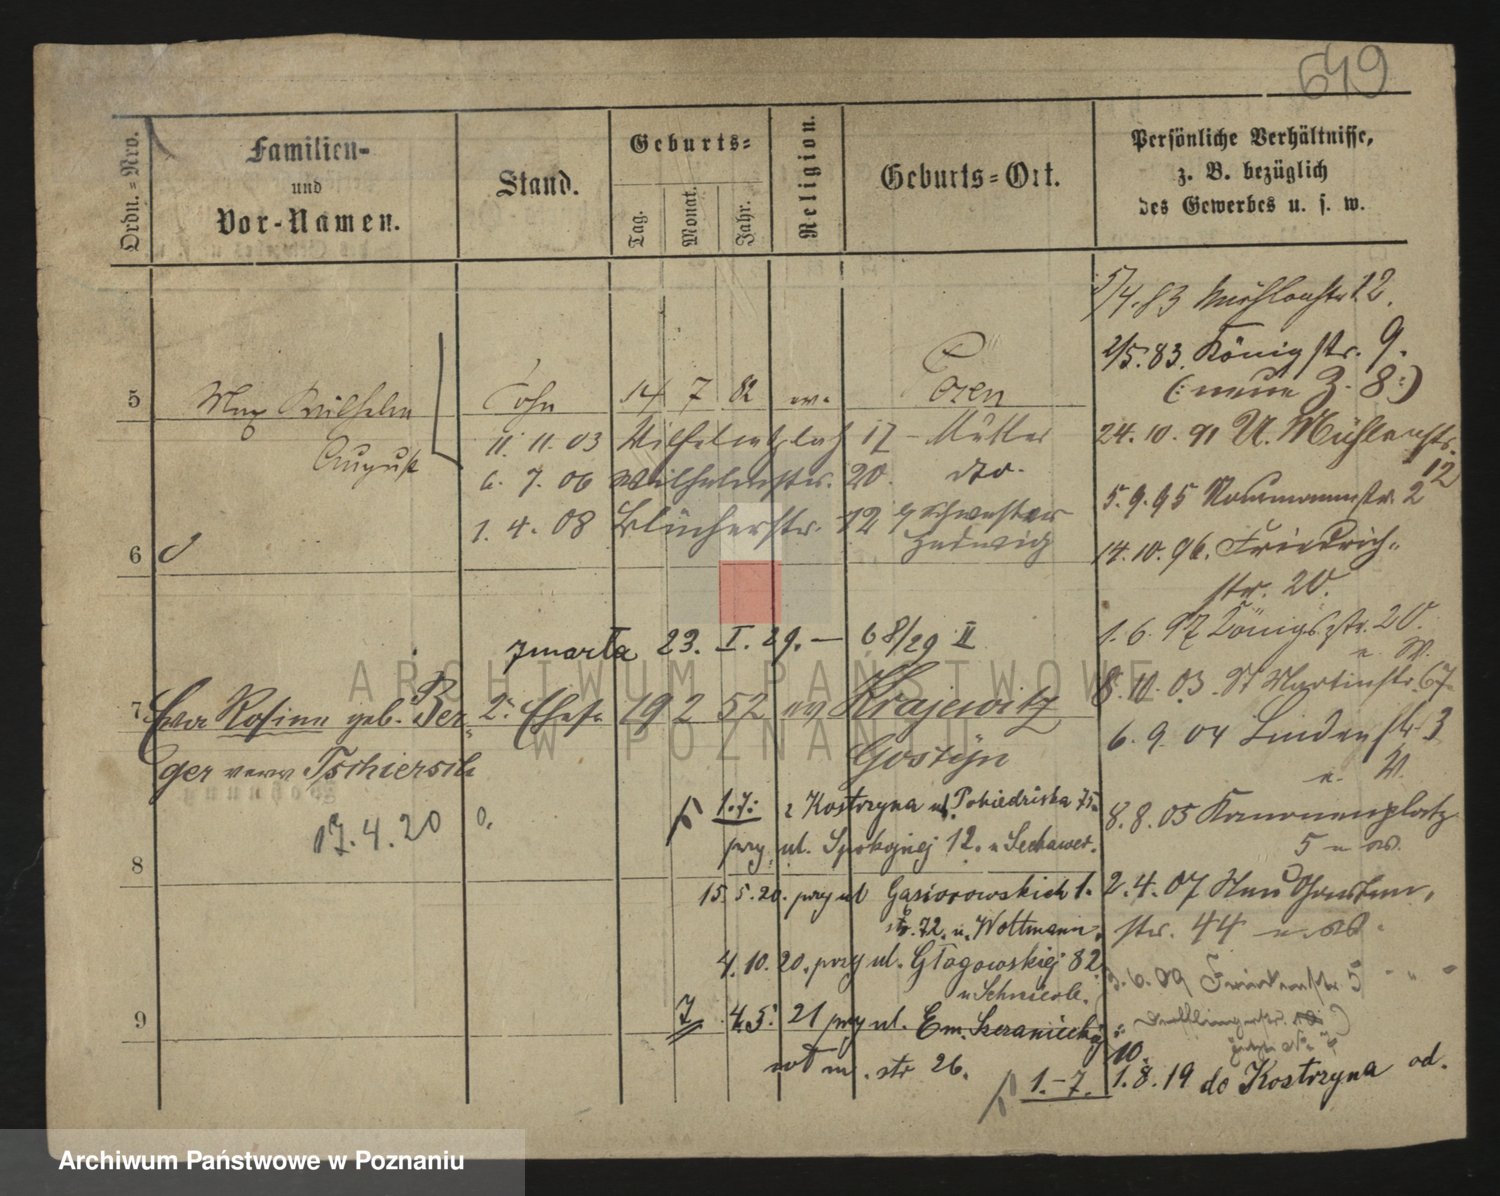 649
Ordn.=Nro.
Familien-
und
Vor-Namen.
Stand.
Geburts=
Tag.
Monat.
Jahr.
Religion.
Geburts=Ort.
Persönliche Verhältnisse,
z. B. bezüglich
des Gewerbes u. s. w.
5/4.83 Mühlenstr 12.
2/5.83. Königstr. 9.
(: neue Z. 8:)
5 Max Wilhelm Sohn 14 7 82 ev. Posen
August
24.10.91 U. Mühlenstr.
12
11. 11. 03 Wilhelmsplatz 17 - Mutter
6. 7. 06 Wilhelmstr. 20. dto.
5.9.95 Naumannstr. 2
1. 4. 08 Blücherstr. 12 Schwester
Hedwig
6
14.10.96. Friedrich-
str. 20.
1.6.97 Königsstr. 20.
zmarła 23. I. 29. — 68/29 II
8.10.03. St Martinstr. 67
7 Eva Rosine geb. Ber- 2. Ehefr 19 2 52 ev Krajewitz
ger verw Tschiersch Gostyn
6.9.04 Lindenstr. 3
u. W.
17.4.20
1.7: z Kostrzyna ul. Pobiedziska 75
przy ul. Spokojnej 12.
8.8.05 Kanonenplatz
5
8
15.5.20. przy ul Gąsiorowskich 1.
str. 72. u. Wottmann.
2.4.07 Neue Gartenstr.
str. 44
4.10.20. przy ul. Głogowskiej 82
3.6.09
9
7 4.5. 21 przy ul. Em. Szczanieckiej
10.
str 26.
1.-7. 1.8.19 do Kostrzyna od.
ARCHIWUM PAŃSTWOWE
W POZNANIU
Archiwum Państwowe w Poznaniu